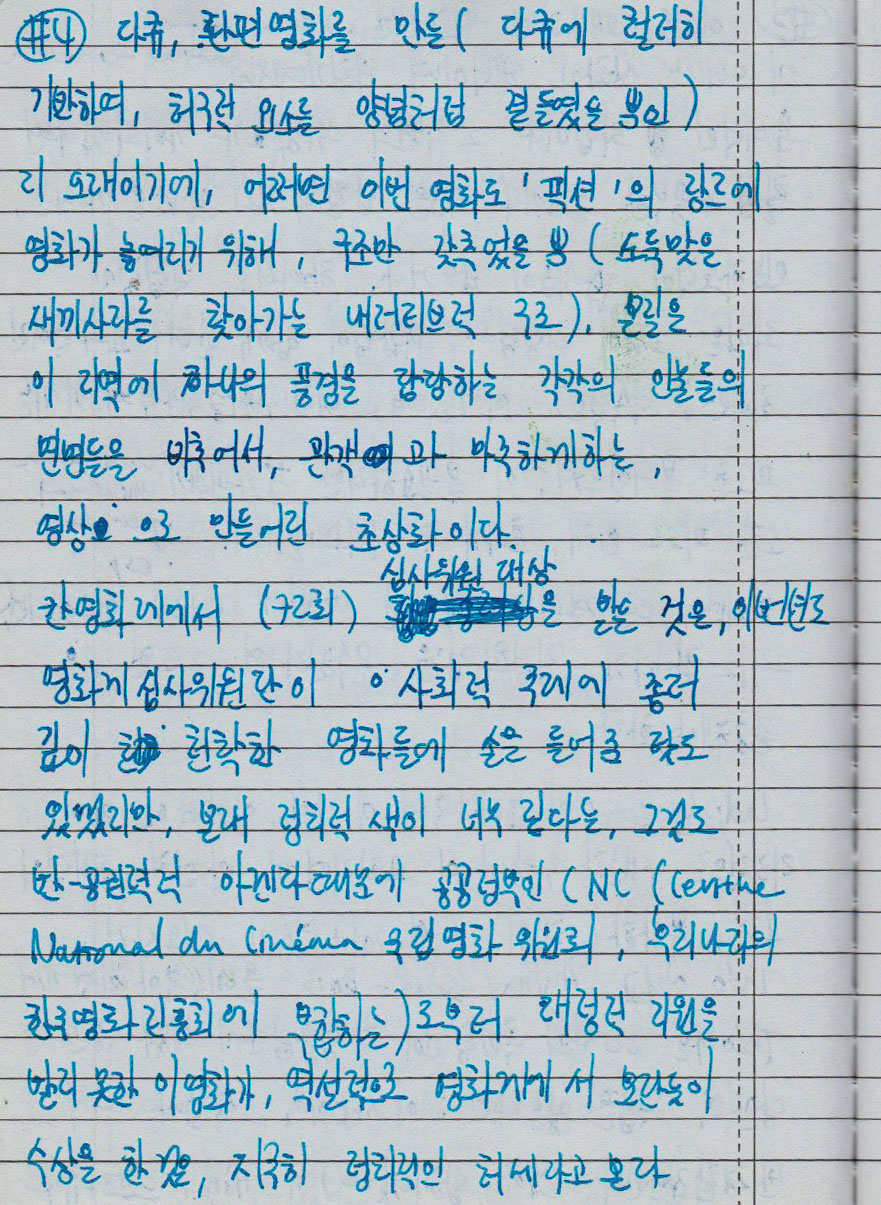 #4 다큐, 단편영화를 만든 ( 다큐에 철저히
기반하여, 허구적 요소를 양념처럼 곁들였을 뿐인 )
지 오래이기에, 어쩌면 이번 영화도 '팩션'의 장르에
영화가 놓여지기 위해, 구조만 갖추었을 뿐 ( 도둑맞은
새끼사자를 찾아가는 내러티브적 구조 ), 모질은
이 지역에 하나의 풍경을 담당하는 각각의 인물들의
면면들을 비추어서, 관객과 마주하게하는,
영상으로 만들어진 초상화이다.
칸영화제에서 (72회) 심사위원 대상을 받은 것은, 이번년도
영화제 심사위원단이 사회적 주제에 좀더
깊이 천착한 영화들에 손을 들어준 탓도
있겠지만, 본래 정치적 색이 너무 짙다는, 그것도
반-공권력적 아젠다때문에 공공정부인 CNC (Centre
National du Cinéma 국립영화 위원회, 우리나라의
한국영화진흥회에 부합하는)로부터 재정적 지원을
받지 못한 이영화가, 역설적으로 영화계에서 보란듯이
수상을 한것을, 지극히 정치적인 처세라고 본다